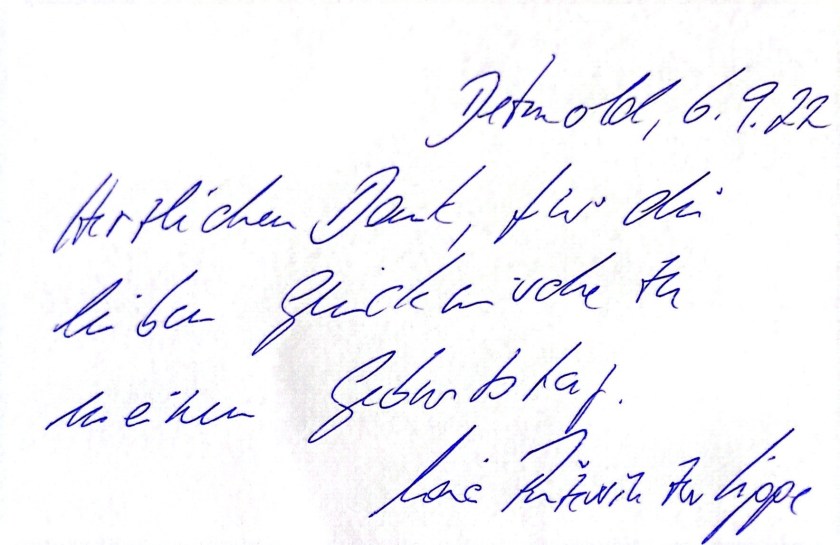 Detmold, 6.9.22
Herzlichen Dank, für die
lieben Glückwünsche zu
meinem Geburtstag.
zur Lippe